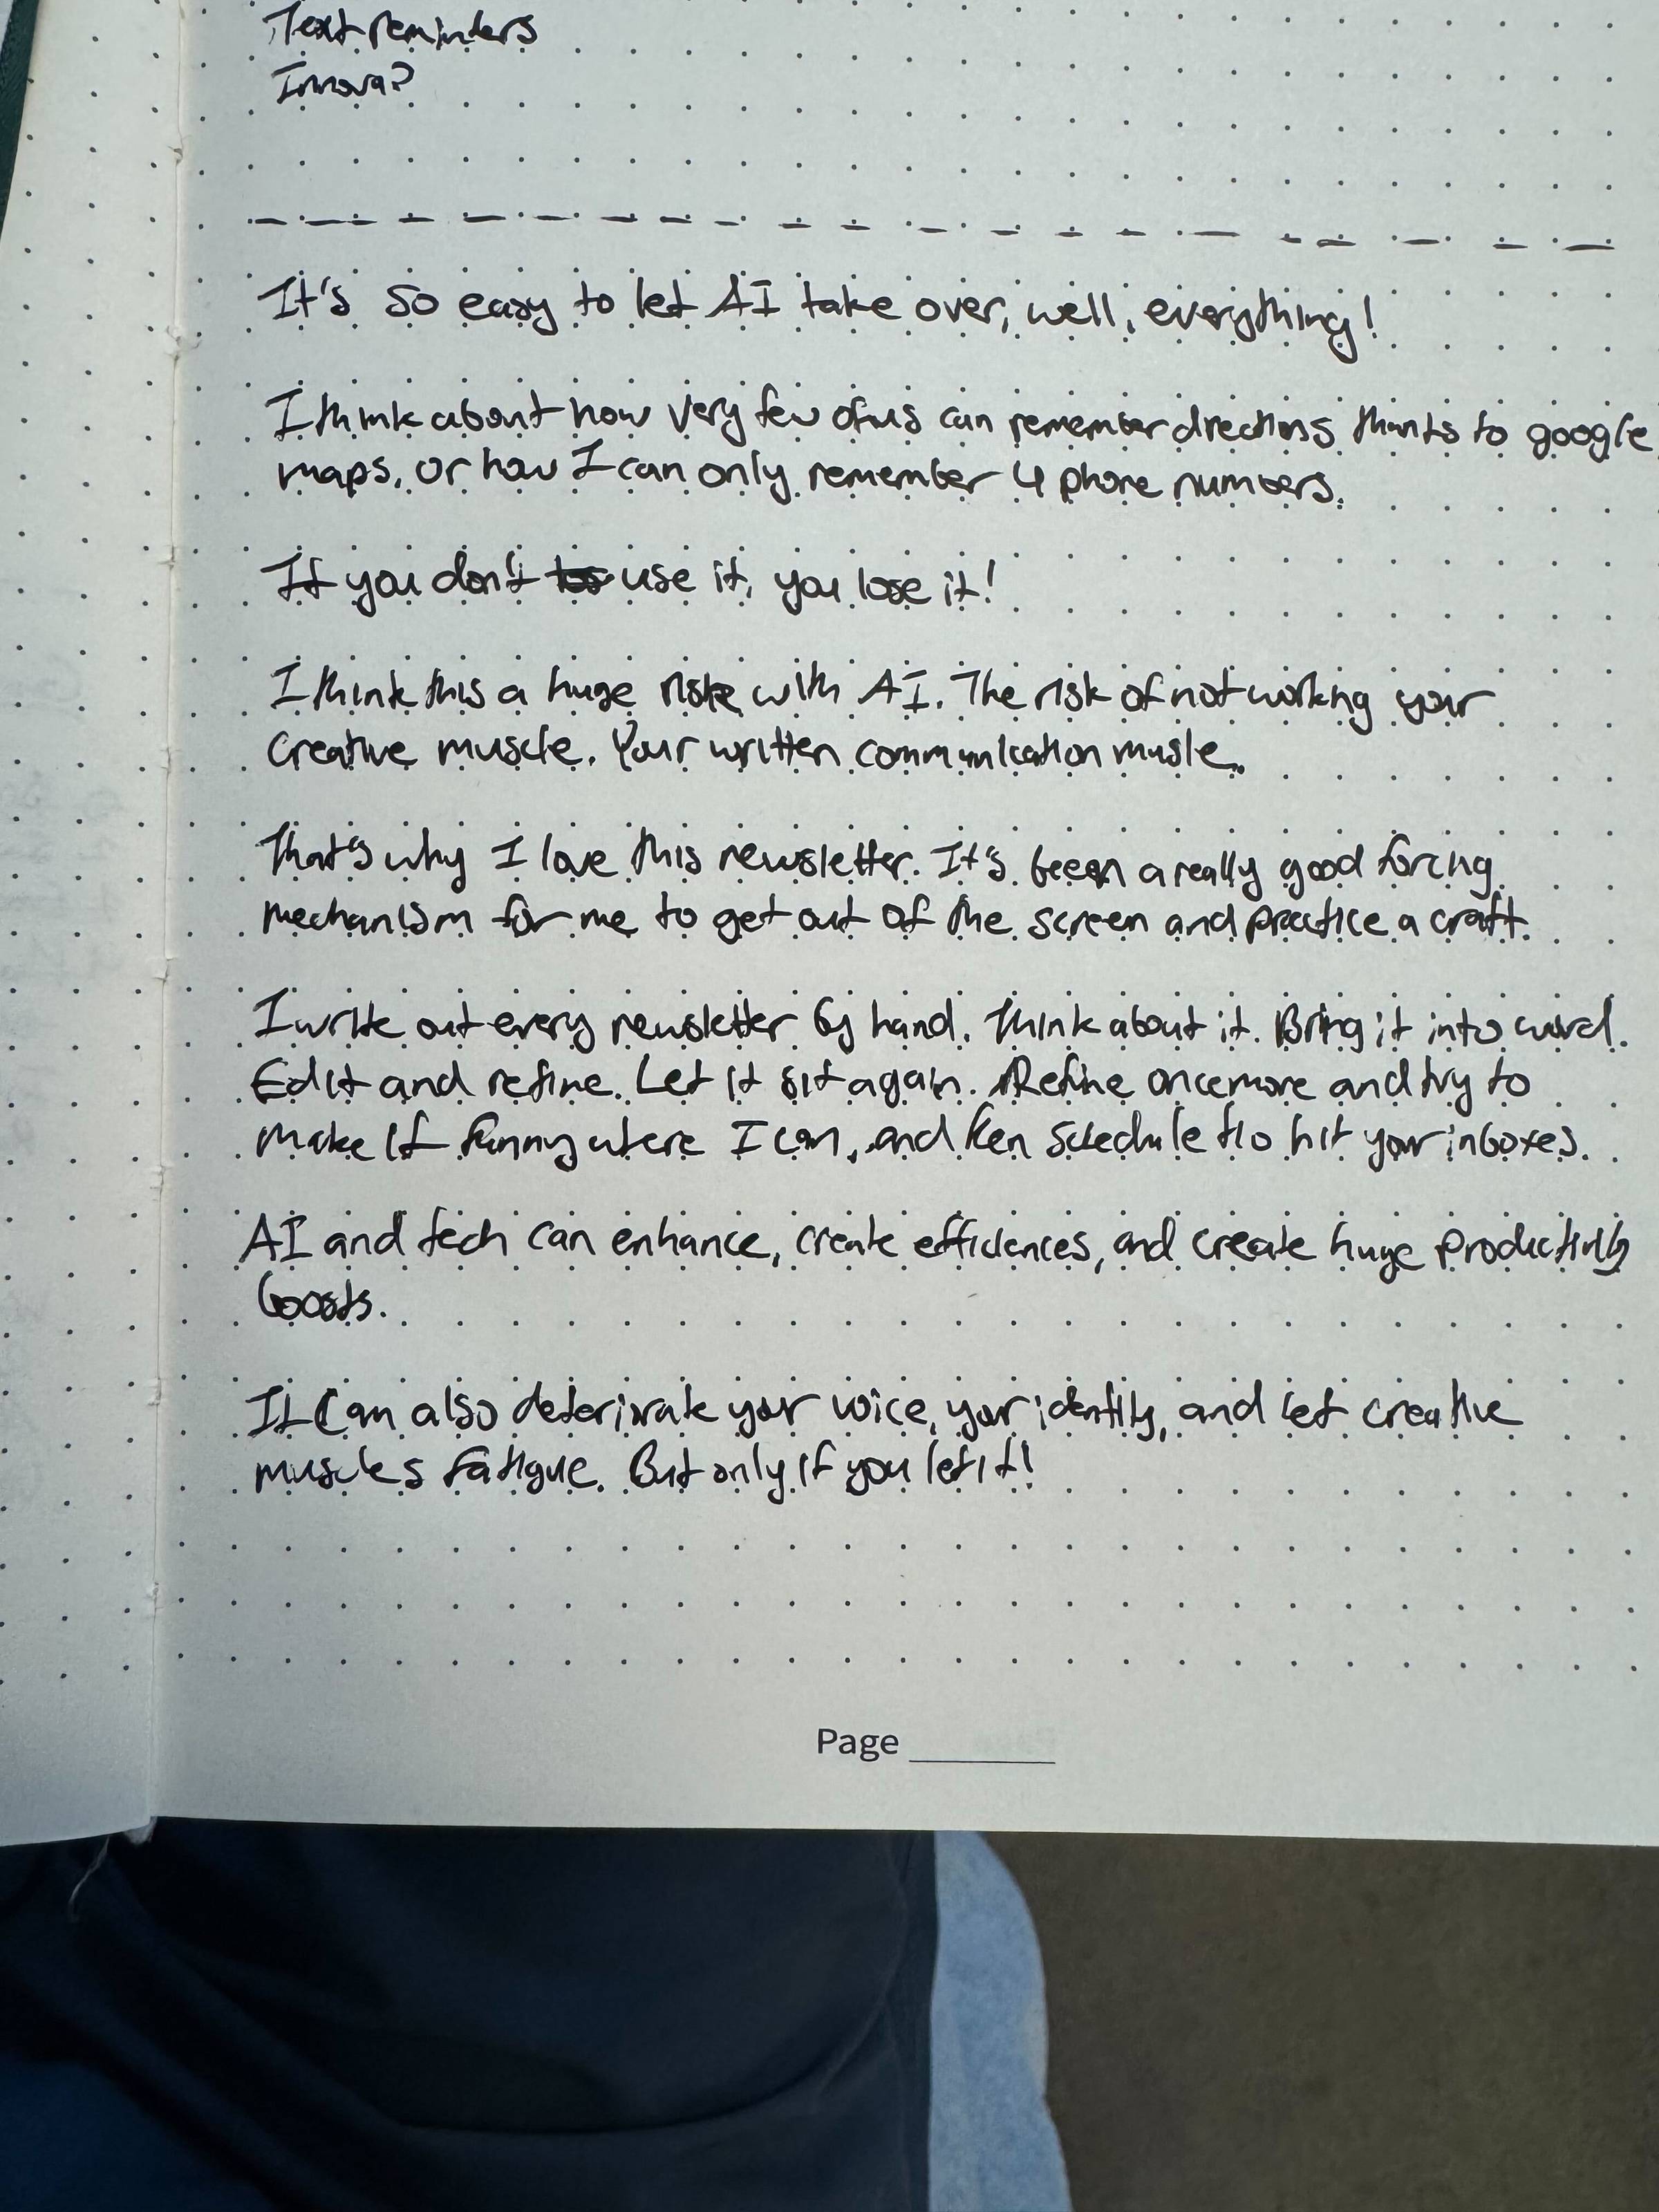 Text reminders
Innova?
It's so easy to let AI take over, well, everything!
I think about how very few of us can remember directions thanks to google
maps, or how I can only remember 4 phone numbers.
If you don't use it, you lose it!
I think this a huge risk with AI. The risk of not working your
creative muscle. Your written communication musle.
That's why I love this newsletter. It's been a really good forcing
mechanism for me to get out of the screen and practice a craft.
I write out every newsletter by hand. Think about it. Bring it into word.
Edit and refine. Let it sit again. Refine once more and try to
make it funny where I can, and then schedule to hit your inboxes.
AI and tech can enhance, create efficiences, and create huge productivity
boosts.
It can also deteriorate your voice, your identity, and let creative
muscles fatigue. But only if you let it!
Page